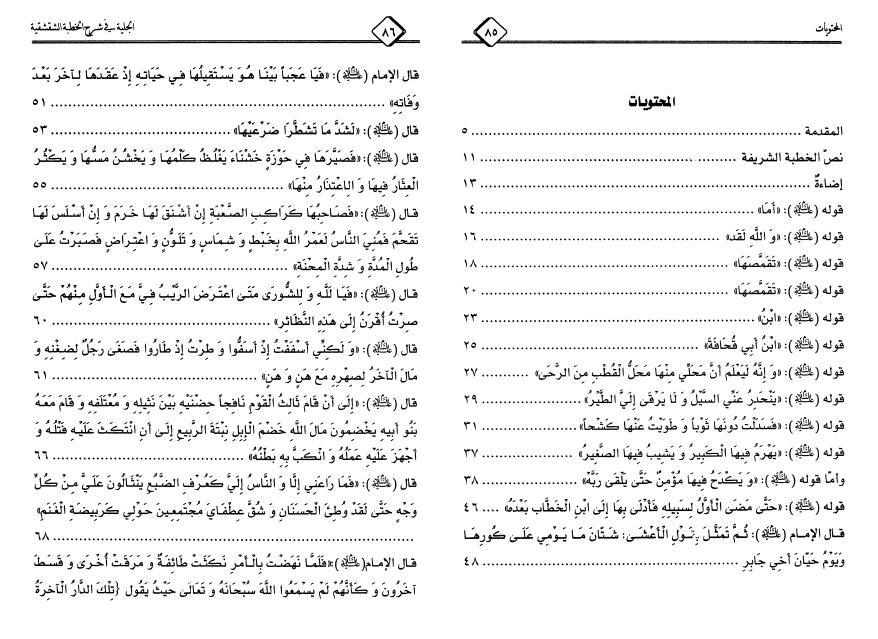 المحتويات
٨٥
المحتويات
المقدمة ........ ٥
نصّ الخطبة الشريفة ........ ١١
إضاءةٌ ........ ١٣
قوله (عليه السلام): «أَمَا» ........ ١٤
قوله (عليه السلام): «وَ اللَّهِ لَقَد» ........ ١٦
قوله (عليه السلام): «تَقَمَّصَهَا» ........ ١٨
قوله (عليه السلام): «تَقَمَّصَهَا» ........ ٢٠
قوله (عليه السلام): «ابْنُ» ........ ٢٣
قوله (عليه السلام): «ابْنُ أَبِي قُحَافَةَ» ........ ٢٥
قوله (عليه السلام): «وَ إِنَّهُ لَيَعْلَمُ أَنَّ مَحَلِّي مِنْهَا مَحَلُّ الْقُطْبِ مِنَ الرَّحَى» ........ ٢٧
قوله (عليه السلام): «يَنْحَدِرُ عَنِّي السَّيْلُ وَ لَا يَرْقَى إِلَيَّ الطَّيْرُ» ........ ٢٩
قوله (عليه السلام): «فَسَدَلْتُ دُونَهَا ثَوْباً وَ طَوَيْتُ عَنْهَا كَشْحاً» ........ ٣١
قوله (عليه السلام): «يَهْرَمُ فِيهَا الْكَبِيرُ وَ يَشِيبُ فِيهَا الصَّغِيرُ» ........ ٣٧
وأما قوله (عليه السلام): «وَ يَكْدَحُ فِيهَا مُؤْمِنٌ حَتَّى يَلْقَى رَبَّهُ» ........ ٣٨
قوله (عليه السلام): «حَتَّى مَضَى الْأَوَّلُ لِسَبِيلِهِ فَأَدْلَى بِهَا إِلَى ابْنِ الْخَطَّابِ بَعْدَهُ» .... ٤٦
قال الإمام (عليه السلام): ثُمَّ تَمَثَّلَ بِقَوْلِ الْأَعْشَى: شَتَّانَ مَا يَوْمِي عَلَى كُورِهَا
وَيَوْمُ حَيَّانَ أَخِي جَابِرِ ........ ٤٨
الجلية في شرح الخطبة الشقشقية
٨٦
قال الإمام (عليه السلام): «فَيَا عَجَباً بَيْنَا هُوَ يَسْتَقِيلُهَا فِي حَيَاتِهِ إِذْ عَقَدَهَا لِآخَرَ بَعْدَ
وَفَاتِهِ» ........ ٥١
قال (عليه السلام): «لَشَدَّ مَا تَشَطَّرَا ضَرْعَيْهَا» ........ ٥٣
قال (عليه السلام): «فَصَيَّرَهَا فِي حَوْزَةٍ خَشْنَاءَ يَغْلُظُ كَلْمُهَا وَ يَخْشُنُ مَسُّهَا وَ يَكْثُرُ
الْعِثَارُ فِيهَا وَ الِاعْتِذَارُ مِنْهَا» ........ ٥٥
قال (عليه السلام): «فَصَاحِبُهَا كَرَاكِبِ الصَّعْبَةِ إِنْ أَشْنَقَ لَهَا خَرَمَ وَ إِنْ أَسْلَسَ لَهَا
تَقَحَّمَ فَمُنِيَ النَّاسُ لَعَمْرُ اللَّهِ بِخَبْطٍ وَ شِمَاسٍ وَ تَلَوُّنٍ وَ اعْتِرَاضٍ فَصَبَرْتُ عَلَى
طُولِ الْمُدَّةِ وَ شِدَّةِ الْمِحْنَةِ» ........ ٥٧
قال (عليه السلام): «فَيَا لَلَّهِ وَ لِلشُّورَى مَتَى اعْتَرَضَ الرَّيْبُ فِيَّ مَعَ الْأَوَّلِ مِنْهُمْ حَتَّى
صِرْتُ أُقْرَنُ إِلَى هَذِهِ النَّظَائِرِ» ........ ٦٠
قال (عليه السلام): «وَ لَكِنِّي أَسْفَفْتُ إِذْ أَسَفُّوا وَ طِرْتُ إِذْ طَارُوا فَصَغَى رَجُلٌ لِضِغْنِهِ وَ
مَالَ الْآخَرُ لِصِهْرِهِ مَعَ هَنٍ وَ هَنٍ» ........ ٦١
قال (عليه السلام): «إِلَى أَنْ قَامَ ثَالِثُ الْقَوْمِ نَافِجاً حِضْنَيْهِ بَيْنَ نَثِيلِهِ وَ مُعْتَلَفِهِ وَ قَامَ مَعَهُ
بَنُو أَبِيهِ يَخْضِمُونَ مَالَ اللَّهِ خَضْمَ الْإِبِلِ نِبْتَةَ الرَّبِيعِ إِلَى أَنِ انْتَكَثَ عَلَيْهِ فَتْلُهُ وَ
أَجْهَزَ عَلَيْهِ عَمَلُهُ وَ انْكَبَّ بِهِ بِطْنَتُهُ» ........ ٦٦
قال (عليه السلام): «فَمَا رَاعَنِي إِلَّا وَ النَّاسُ إِلَيَّ كَعُرْفِ الضَّبُعِ يَنْثَالُونَ عَلَيَّ مِنْ كُلِّ
وَجْهٍ حَتَّى لَقَدْ وُطِئَ الْحَسَنَانِ وَ شُقَّ عِطْفَايَ مُجْتَمِعِينَ حَوْلِي كَرَبِيضَةِ الْغَنَمِ»
........ ٦٨
قال الإمام(عليه السلام): «فَلَمَّا نَهَضْتُ بِالْأَمْرِ نَكَثَتْ طَائِفَةٌ وَ مَرَقَتْ أُخْرَى وَ قَسَطَ
آخَرُونَ وَ كَأَنَّهُمْ لَمْ يَسْمَعُوا اللَّهَ سُبْحَانَهُ وَ تَعَالَى حَيْثُ يَقُول {تِلْكَ الدَّارُ الْآخِرَةُ